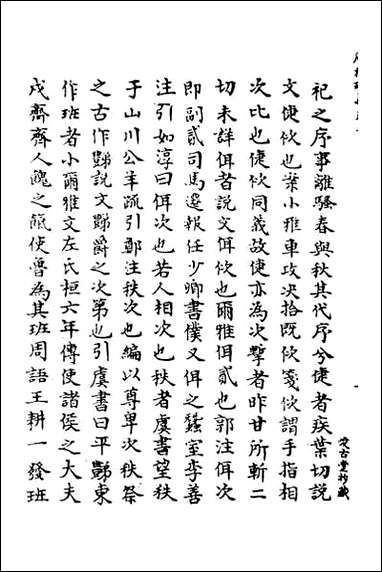 祀之序事離騷春與秋其代序兮倢者疾葉切說
文倢佽也葉小雅車攻決拾既佽箋佽謂手指相
次比也倢佽同義故倢亦為次者昨甘所斬二
切未詳佴者說文佴佽也爾雅佴貳也郭注佴次
即副貳司馬遷報任少卿書僕又佴之蠶室李善
注引如淳曰佴次也若人相次也秩者虞書望秩
于山川公羊疏引鄭注秩次也編以尊卑次秩祭
之古作豑說文豑爵之次第也引虞書曰平豑東
作班者小爾雅文左氏桓六年傳使諸侯之大夫
戍齊齊人餽之餼使魯為其班周語王耕一發班
古堂抄藏